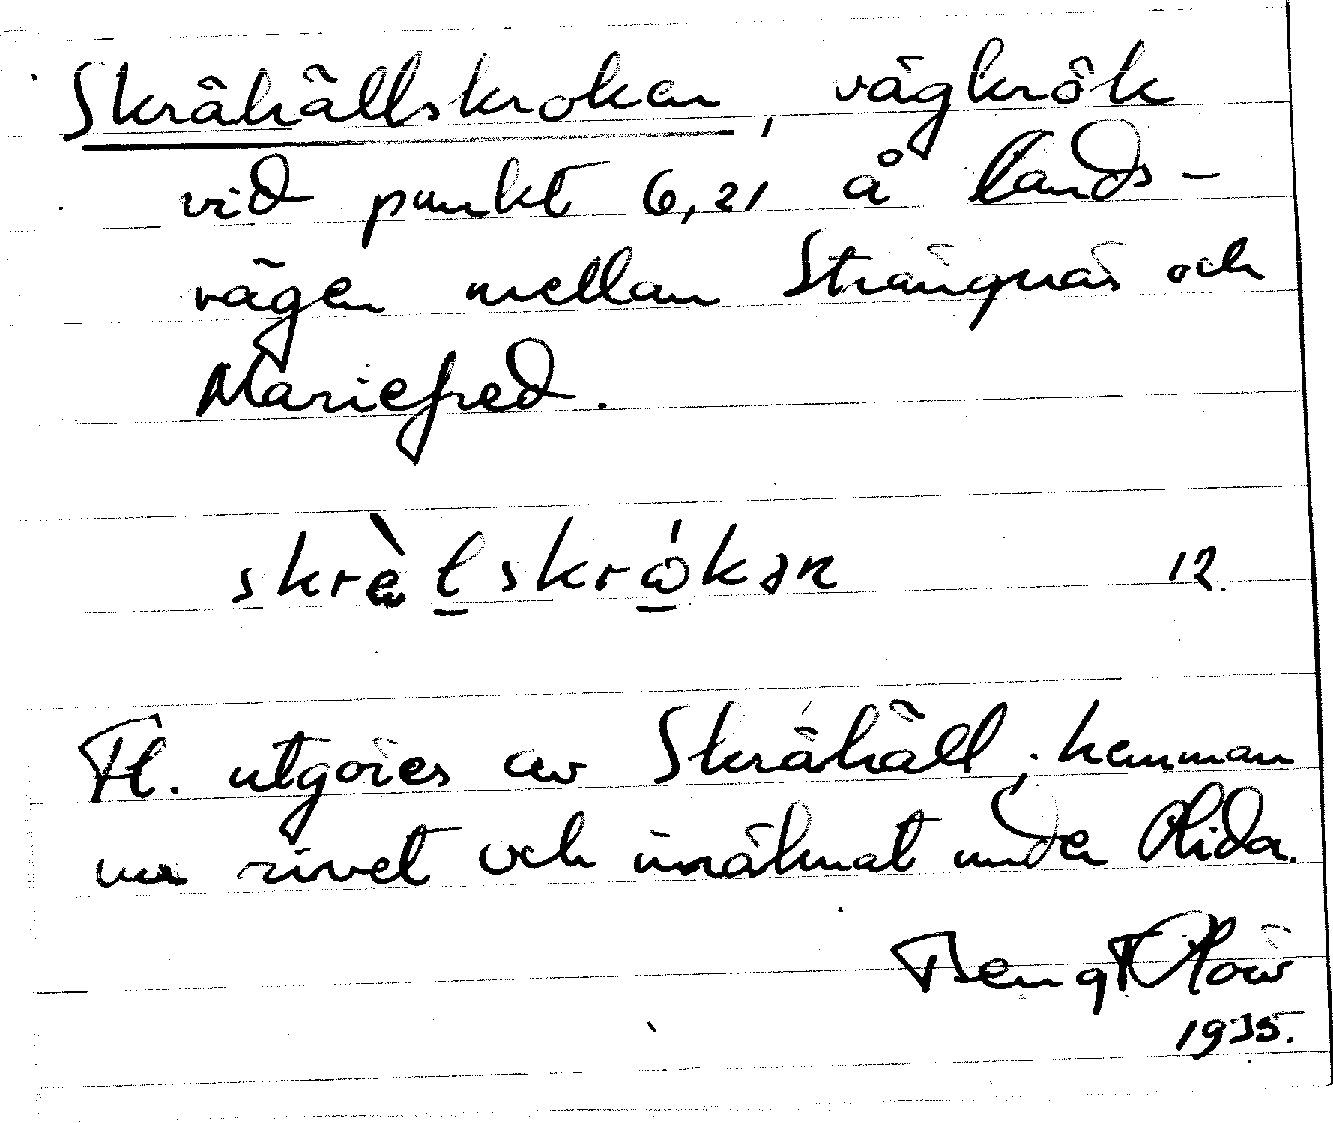 Skrähällskroken, vägkrök
vid punkt 6,21 å lands-
vägen mellan Strängnäs och
Mariefred.
skrè̀lskrὼkən 12.
Fl. utgöres av Skrähäll, hemman
nu rivet och inräknat under Hida.
Bengt
1935.